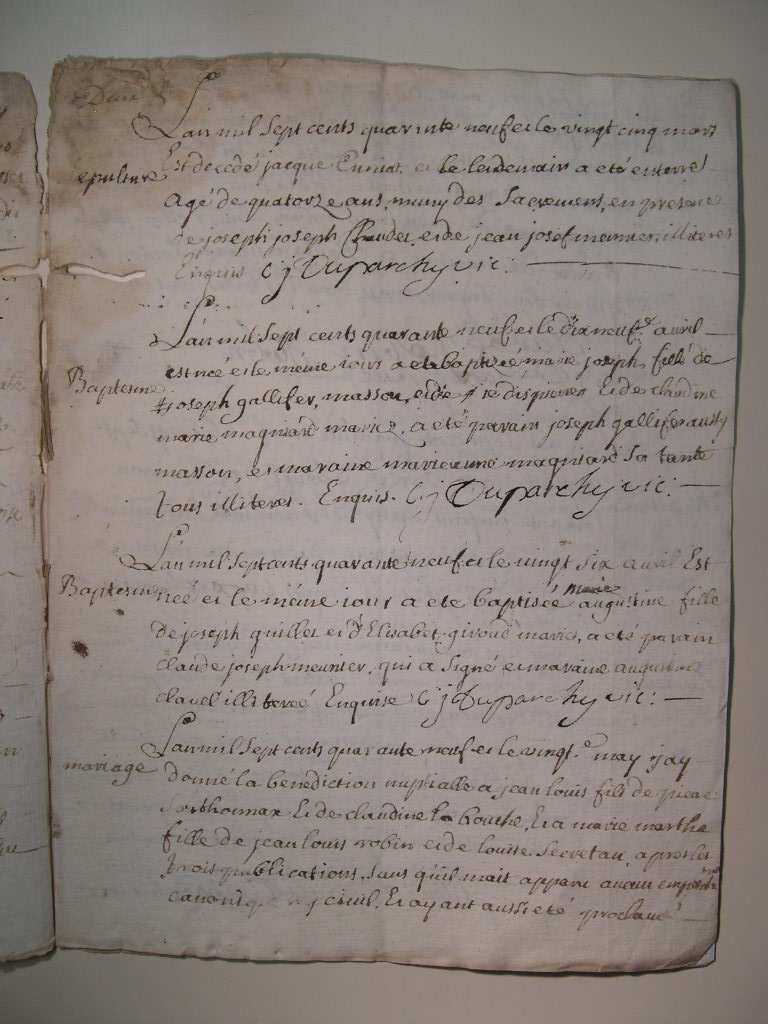 L'an mil sept cents quarante neuf et le vingt cinq mars
epulture
Est decedé jacque et le lendemain a eté enterré
Agé de quatorze ans, muny des Sacremens, en presence
de joseph joseph et de jean josef meunier, illiteres
Enquis C j Duparchy vic:
L'an mil sept cents quarante neuf et le dix neuf avril
est née et le même iour a eté baptizée marie joseph, fille de
Baptesme
joseph gallifer, masson, et de Claudine
marie magniard mariez, a eté parain joseph gallifer aussy
masson, et maraine marie anne magniard sa tante
tous illiteres. Enquis. C j Duparchy vic:
L'an mil sept cents quarante neuf et le vingt six avril Est
Baptesme
née et le même iour a ete baptisée marie augustine fille
de joseph quillet et d'Elisabet giroud mariés, a eté parain
claude joseph meunier, qui a signé et maraine augustine
clavel illiterée Enquise C j Duparchy vic:
L'an mil sept cents quarante neuf et le vingt may j'ay
mariage
donné la benediction nuptialle a jean louis fils de piere
et de claudine la bouche, Et a marie marthe
fille de jean louis robin et de louise secretan, apres les
trois publications, sans qu'il m'ait apparu aucun
canonique ny civil, Et ayant aussi eté proclamé